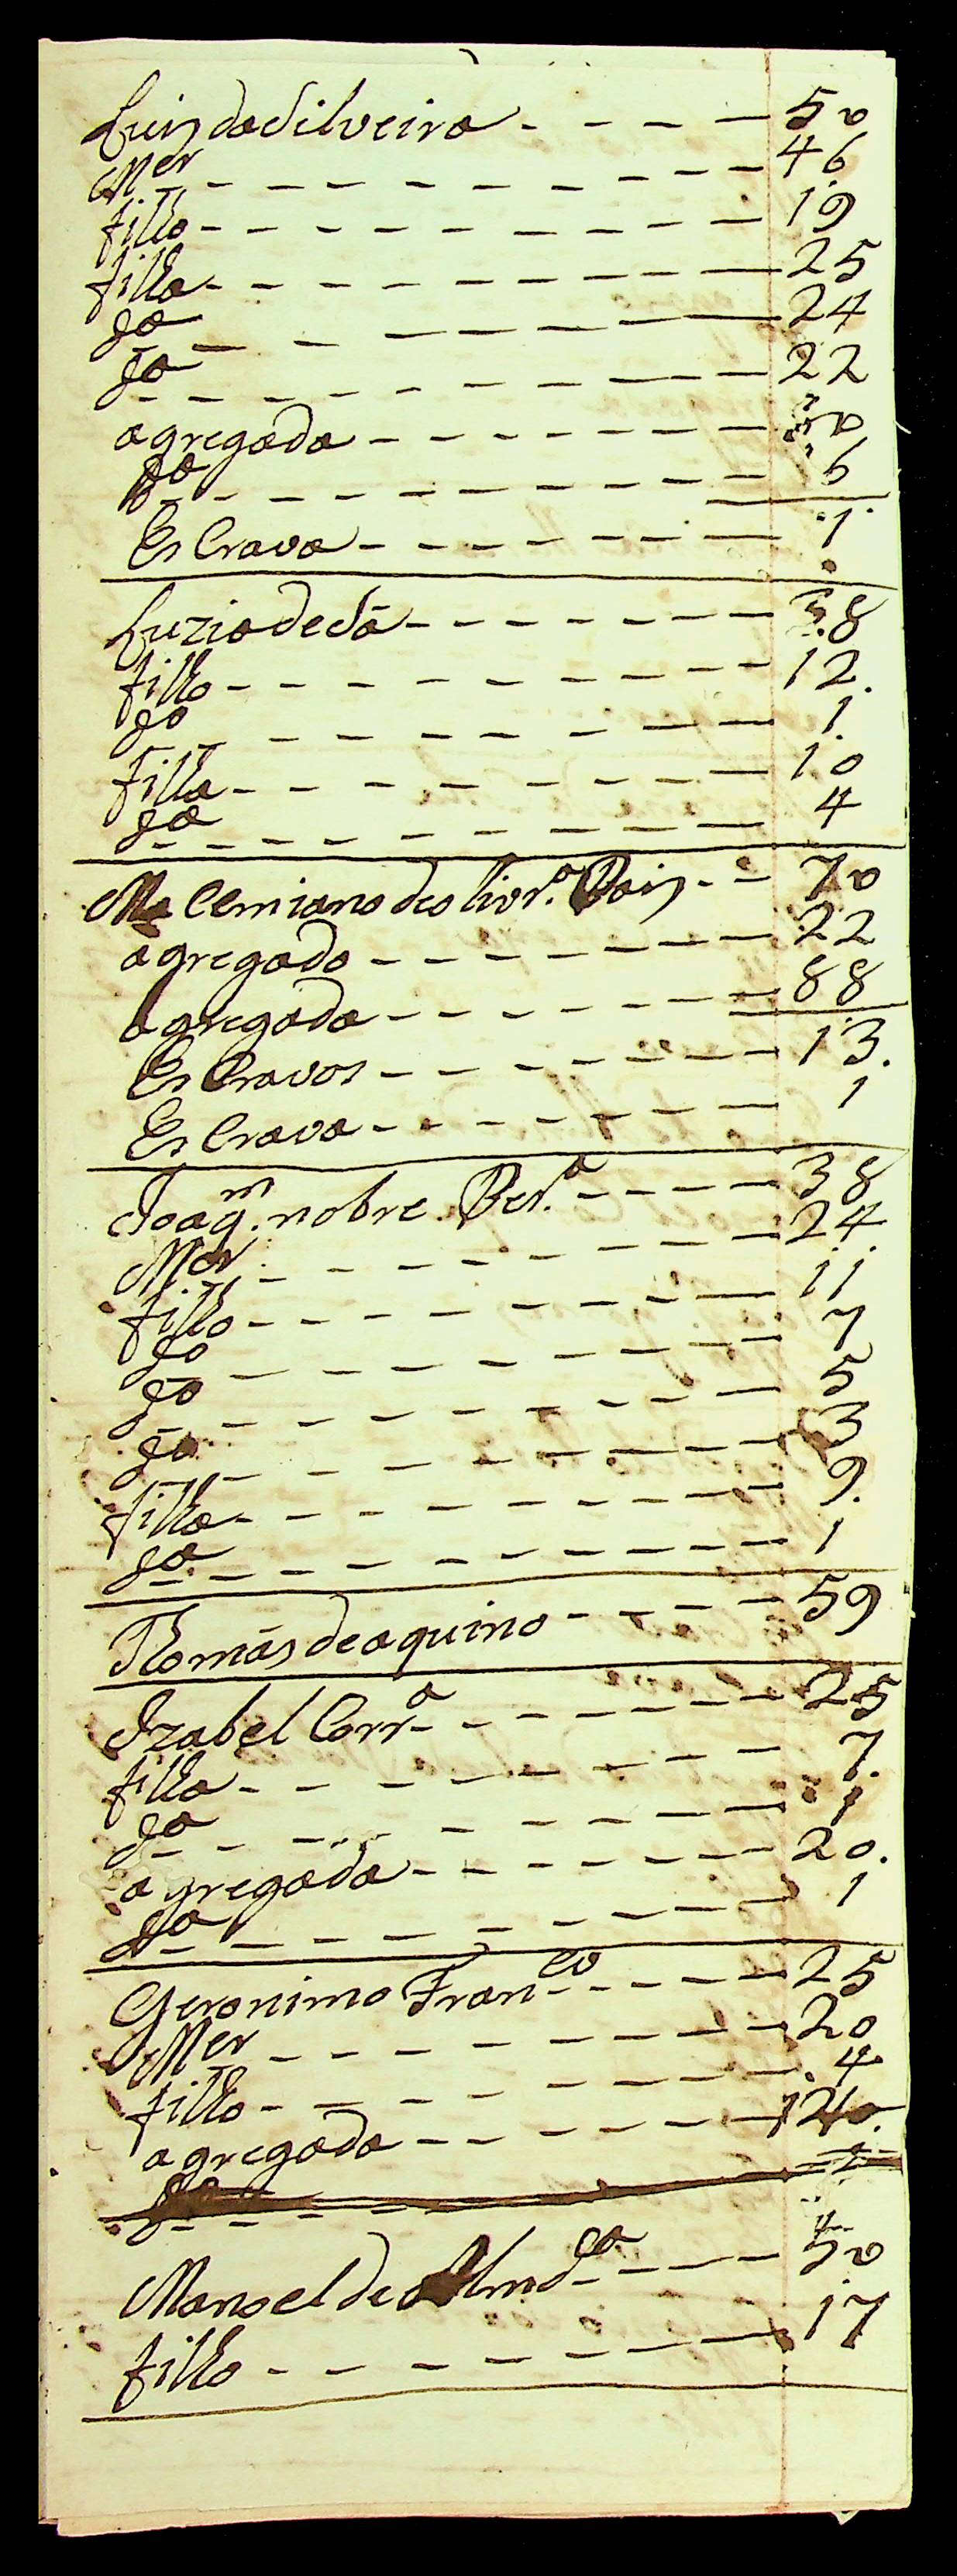 Luis da Silveira - - - - 50
Mer - - - - - - - - - 46
filho - - - - - - - - - 19
filha - - - - - - - - - 25
Da - - - - - - - 24
Da - - - - - - - - - 22
agregada - - - - - - - 50
Da - - - - - - - - - 6
Escrava - - - - - - - 1
Luzia de Sá - - - - - - - 38
filho - - - - - - - - - 12.
Do - - - - - - - - 1.
Filha - - - - - - - - - 10
Da - - - - - - - - - 4
Clemiano de olivr.ª Pais - - 70
agregado - - - - - - - 22
agregada - - - - - - - 88
Escravos - - - - - - - 13.
Escrava - - - - - - - 1
Joaq.m nobre Per.ª - - - - 38
Mer - - - - - - - - 24
filho - - - - - - - - - 11
Do - - - - - - - - 7
Do - - - - - - - - 5
Do - - - - - - - - 3
filha - - - - - - - - - 9.
Da - - - - - - - - - 1
Thomás de aquino - - - - - 59
Izabel Corr.ª - - - - - - 25
filha - - - - - - - - 7.
Da - - - - - - - - 1
agregada - - - - - - - 20.
Da - - - - - - - - 1
Geronimo Fran.co - - - - - 25
Mer - - - - - - - - 20
filho - - - - - - - - - 4
agregada - - - - - -
Manoel de Almd.ª - - - - 50
filho - - - - - - - - 17